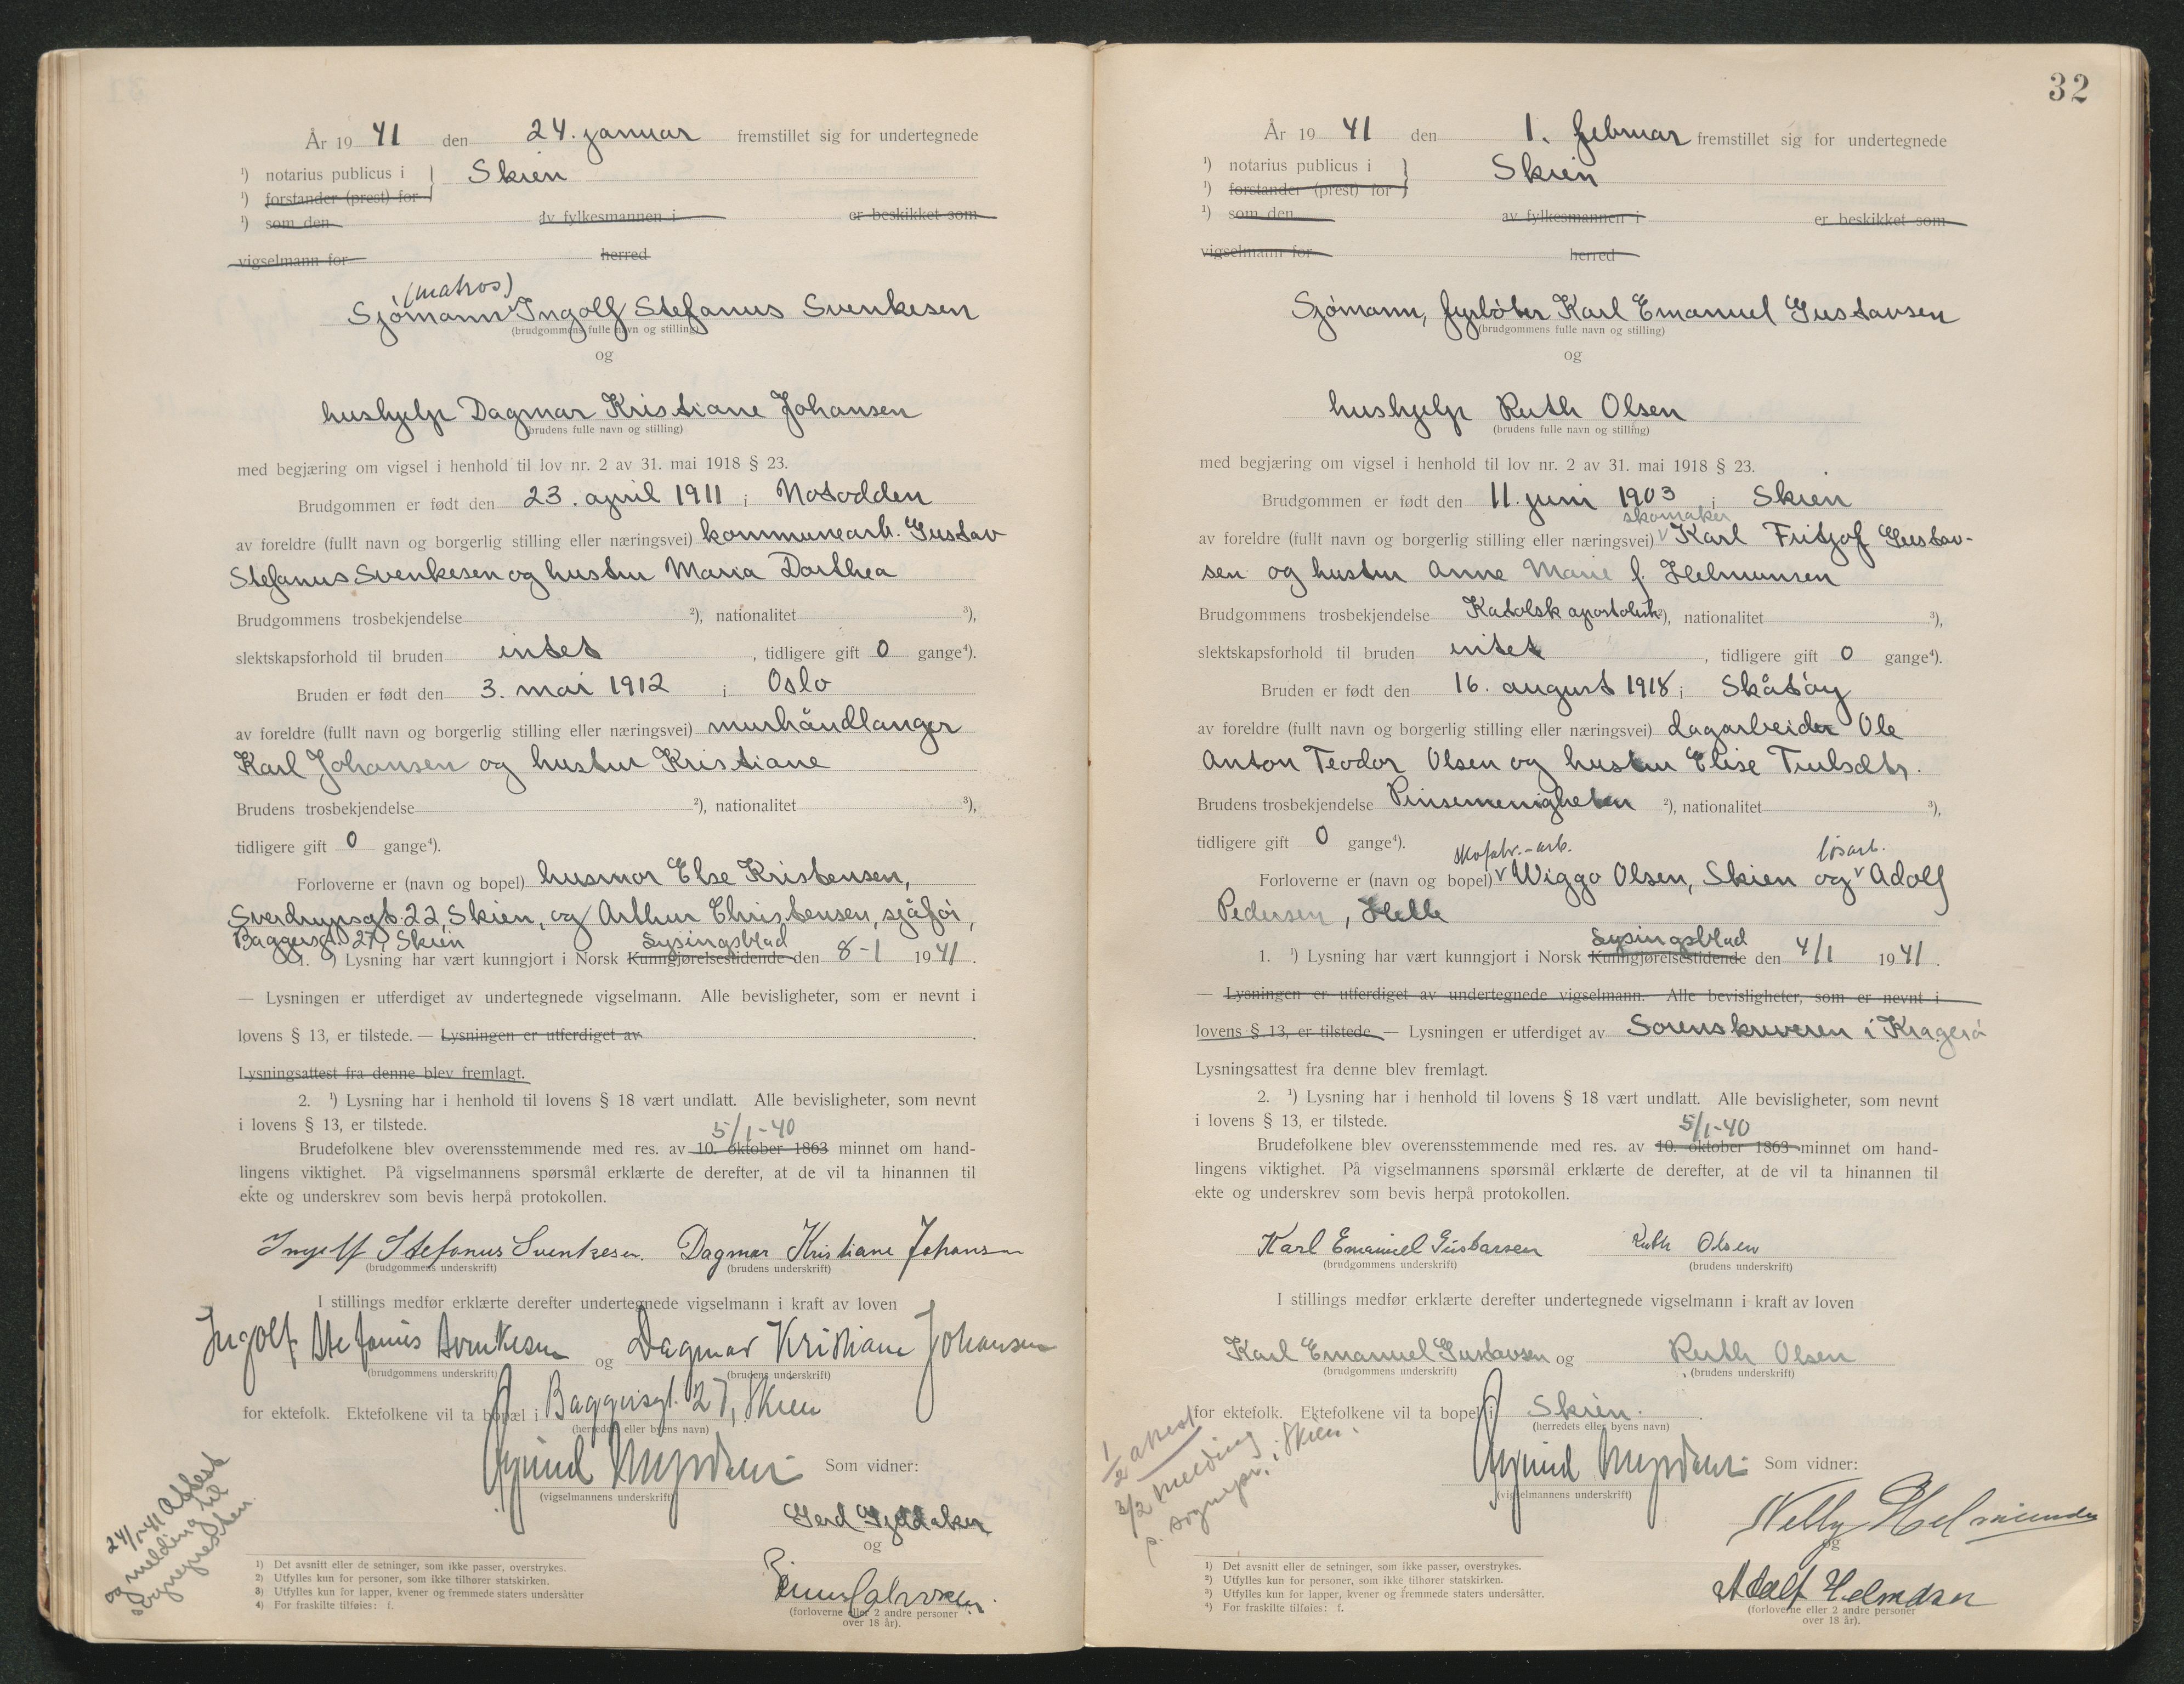 År 19 41 den 24. januar fremstillet sig for undertegnede
¹) notarius publicus i } Skien
¹) forstander (prest) for
¹) som den av fylkesmannen i er beskikket som
vigselmann for herred
(matros)
Sjømann Ingolf Stefanus Svenkesen
(brudgommens fulle navn og stilling)
og
hushjelp Dagmar Kristiane Johansen
(brudens fulle navn og stilling)
med begjæring om vigsel i henhold til lov nr. 2 av 31. mai 1918 § 23.
Brudgommen er født den 23. april 1911 i Notodden
av foreldre (fullt navn og borgerlig stilling eller næringsvei) kommunearb. Gustav
Stefanus Svenkesen og hustru Maria Dorthea
Brudgommens trosbekjendelse ²), nationalitet ³),
slektskapsforhold til bruden intet, tidligere gift 0 gange⁴).
Bruden er født den 3. mai 1912 i Oslo
av foreldre (fullt navn og borgerlig stilling eller næringsvei) murhåndlanger
Karl Johansen og hustru Kristiane
Brudens trosbekjendelse ²), nationalitet ³),
tidligere gift 0 gange⁴).
Forloverne er (navn og bopel) husmor Else Kristensen,
Sverdrupsgt. 22, Skien, og Arthur Christensen, sjåfør,
Baggersgt. 27, Skien Lysingsblad
1. ¹) Lysning har vært kunngjort i Norsk Kunngjørelsestidende den 8-1 1941.
— Lysningen er utferdiget av undertegnede vigselmann. Alle bevisligheter, som er nevnt i
lovens § 13, er tilstede. — Lysningen er utferdiget av
Lysningsattest fra denne blev fremlagt.
2. ¹) Lysning har i henhold til lovens § 18 vært undlatt. Alle bevisligheter, som nevnt
i lovens § 13, er tilstede.
5/1-40
Brudefolkene blev overensstemmende med res. av 10. oktober 1863 minnet om hand-
lingens viktighet. På vigselmannens spørsmål erklærte de derefter, at de vil ta hinannen til
ekte og underskrev som bevis herpå protokollen.
Ingolf Stefanus Svenkesen. Dagmar Kristiane Johansen
(brudgommens underskrift) (brudens underskrift)
I stillings medfør erklærte derefter undertegnede vigselmann i kraft av loven
Ingolf Stefanus Svenkesen og Dagmar Kristiane Johansen
(brudgommens underskrift) (brudens underskrift)
for ektefolk. Ektefolkene vil ta bopæl i Baggersgt. 27, Skien
(herredets eller byens navn)
Som vidner:
(vigselmannens underskrift)
Gerd
og
24/1-41 Attest
og melding til
sognepresten.
(forloverne eller 2 andre personer
over 18 år).
1) Det avsnitt eller de setninger, som ikke passer, overstrykes.
2) Utfylles kun for personer, som ikke tilhører statskirken.
3) Utfylles kun for lapper, kvener og fremmede staters undersåtter
4) For fraskilte tilføies: f.
32
År 19 41 den 1. februar fremstillet sig for undertegnede
¹) notarius publicus i } Skien
¹) forstander (prest) for
¹) som den av fylkesmannen i er beskikket som
vigselmann for herred
Sjømann, fyrbøter Karl Emanuel Gustavsen
(brudgommens fulle navn og stilling)
og
hushjelp Ruth Olsen
(brudens fulle navn og stilling)
med begjæring om vigsel i henhold til lov nr. 2 av 31. mai 1918 § 23.
Brudgommen er født den 11. juni 1903 i Skien
skomaker
av foreldre (fullt navn og borgerlig stilling eller næringsvei) Karl Fritjof Gustav-
sen og hustru Anne Marie f. Helmunsen
Brudgommens trosbekjendelse Katolsk apostolisk ²), nationalitet ³),
slektskapsforhold til bruden intet, tidligere gift 0 gange⁴).
Bruden er født den 16. august 1918 i Skåtøy
av foreldre (fullt navn og borgerlig stilling eller næringsvei) dagarbeider Ole
Anton Teodor Olsen og hustru Elise Trulsdtr.
Brudens trosbekjendelse Pinsemenigheten ²), nationalitet ³),
tidligere gift 0 gange⁴).
skofabr.-arb. løsarb.
Forloverne er (navn og bopel) Wiggo Olsen, Skien og Adolf
Pedersen, Helle
Lysingsblad
1. ¹) Lysning har vært kunngjort i Norsk Kunngjørelsestidende den 4/1 1941.
— Lysningen er utferdiget av undertegnede vigselmann. Alle bevisligheter, som er nevnt i
lovens § 13, er tilstede. — Lysningen er utferdiget av Sorenskriveren i Kragerø
Lysningsattest fra denne blev fremlagt.
2. ¹) Lysning har i henhold til lovens § 18 vært undlatt. Alle bevisligheter, som nevnt
i lovens § 13, er tilstede.
5/1-40
Brudefolkene blev overensstemmende med res. av 10. oktober 1863 minnet om hand-
lingens viktighet. På vigselmannens spørsmål erklærte de derefter, at de vil ta hinannen til
ekte og underskrev som bevis herpå protokollen.
Karl Emanuel Gustavsen Ruth Olsen
(brudgommens underskrift) (brudens underskrift)
I stillings medfør erklærte derefter undertegnede vigselmann i kraft av loven
Karl Emanuel Gustavsen og Ruth Olsen
(brudgommens underskrift) (brudens underskrift)
for ektefolk. Ektefolkene vil ta bopel i Skien.
(herredets eller byens navn)
1/2 attest
3/2 melding
p. sognepr. i Skien.
Som vidner:
(vigselmannens underskrift)
Nelly
og
Adolf
(forloverne eller 2 andre personer
over 18 år).
¹) Det avsnitt eller de setninger, som ikke passer, overstrykes.
²) Utfylles kun for personer, som ikke tilhører statskirken.
³) Utfylles kun for lapper, kvener og fremmede staters undersåtter.
⁴) For fraskilte tilføies: f.